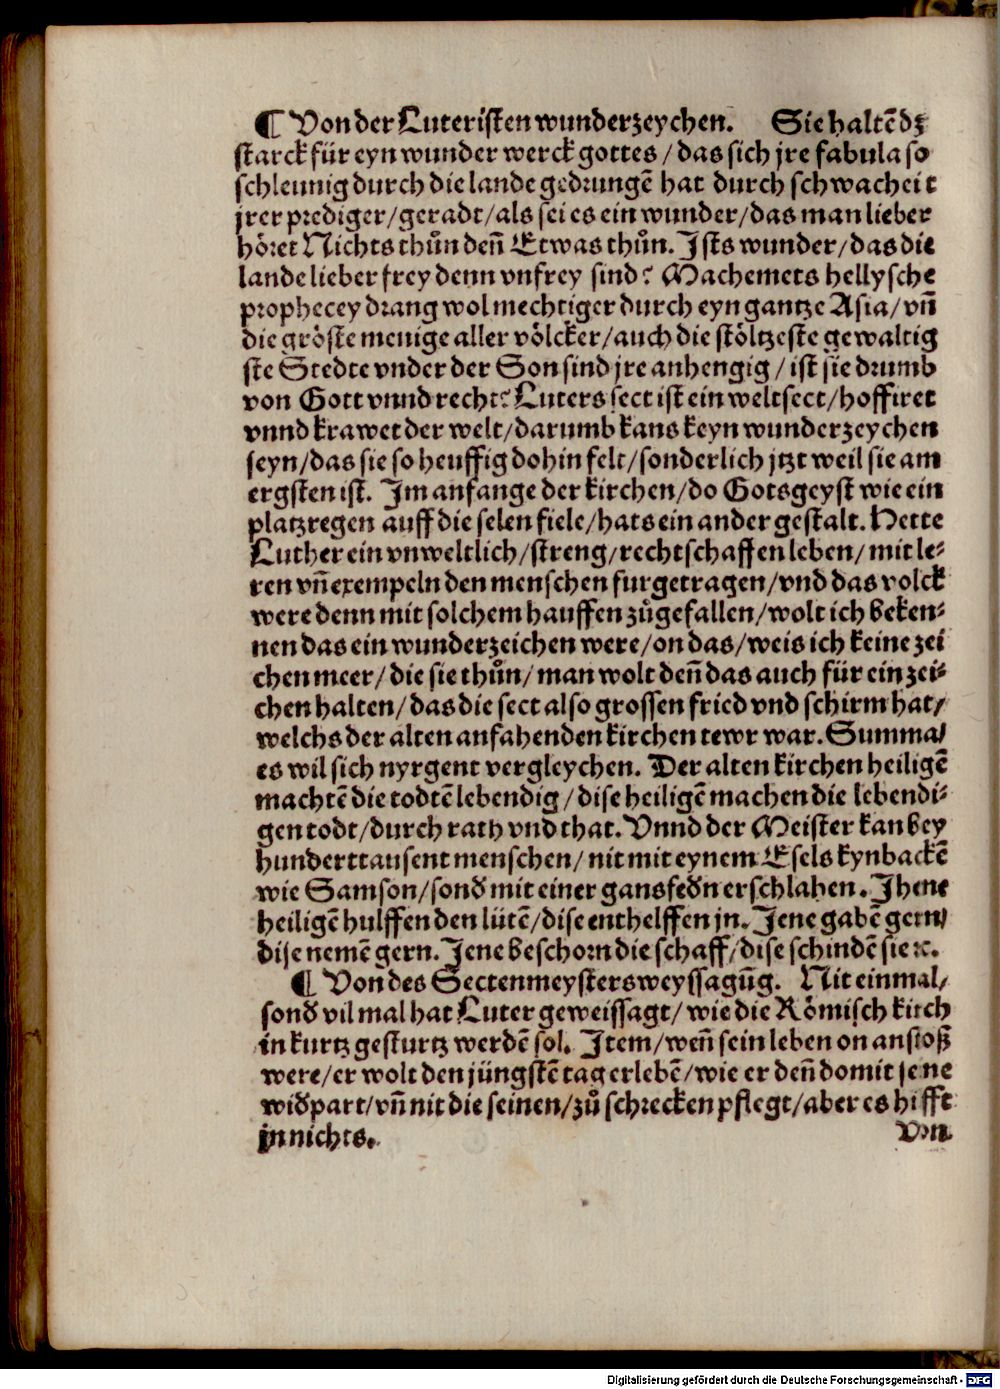 ¶ Von der Luteristen wunderzeychen. Sie haltē dz
starck für eyn wunder werck gottes / das sich jre fabula so
schleunig durch die lande gedrungē hat durch schwacheit
jrer prediger/geradt/als sei es ein wunder/das man lieber
höret Nichts thůn den̄ Etwas thůn. Ists wunder/das die
lande lieber frey denn vnfrey sind? Machemets hellysche
prophecey drang wol mechtiger durch eyn gantze Asia/vn̄
die gröste menige aller völcker/auch die stöltzeste gewaltig
ste Stedte vnder der Son sind jre anhengig / ist sie drumb
von Gott vnnd recht? Luters sect ist ein weltsect/hoffiret
vnnd krawet der welt/darumb kans keyn wunderzeychen
seyn/das sie so heuffig dohin felt/sonderlich jtzt weil sie am
ergsten ist. Im anfange der kirchen/do Gotsgeyst wie ein
platzregen auff die selen fiele/hats ein ander gestalt. Hette
Luther ein vnweltlich/streng/rechtschaffen leben/mit le⸗
ren vn̄ exempeln den menschen furgetragen/vnd das volck
were denn mit solchem hauffen zůgefallen/wolt ich beken⸗
nen das ein wunderzeichen were/on das/weis ich keine zei
chen meer/die sie thůn/man wolt den̄ das auch für ein zei⸗
chen halten/das die sect also grossen fried vnd schirm hat/
welchs der alten anfahenden kirchen tewr war. Summa/
es wil sich nyrgent vergleychen. Der alten kirchen heiligē
machtē die todtē lebendig/dise heiligē machen die lebendi⸗
gen todt/durch rath vnd that. Vnnd der Meister kan bey
hunderttausent menschen/nit mit eynem Esels kynbackē
wie Samson/sond̕ mit einer gansfed̕n erschlahen. Ihene
heiligē hulffen den lütē/dise enthelffen jn. Jene gabē gern/
dise nemē gern. Jene beschorn die schaff/dise schindē sie ꝛc.
¶ Von des Sectenmeysters weyssagūg. Nit einmal/
sond̕ vil mal hat Luter geweissagt/wie die Römisch kirch
in kurtz gesturtz werdē sol. Item/wen̄ sein leben on anstoß
were/er wolt den jüngstē tag erlebē/wie er den̄ domit jene
wid̕part/vn̄ nit die seinen/zů schrecken pflegt/aber es hilfft
jn nichts.
Von
Digitalisierung gefördert durch die Deutsche Forschungsgemeinschaft - DFG